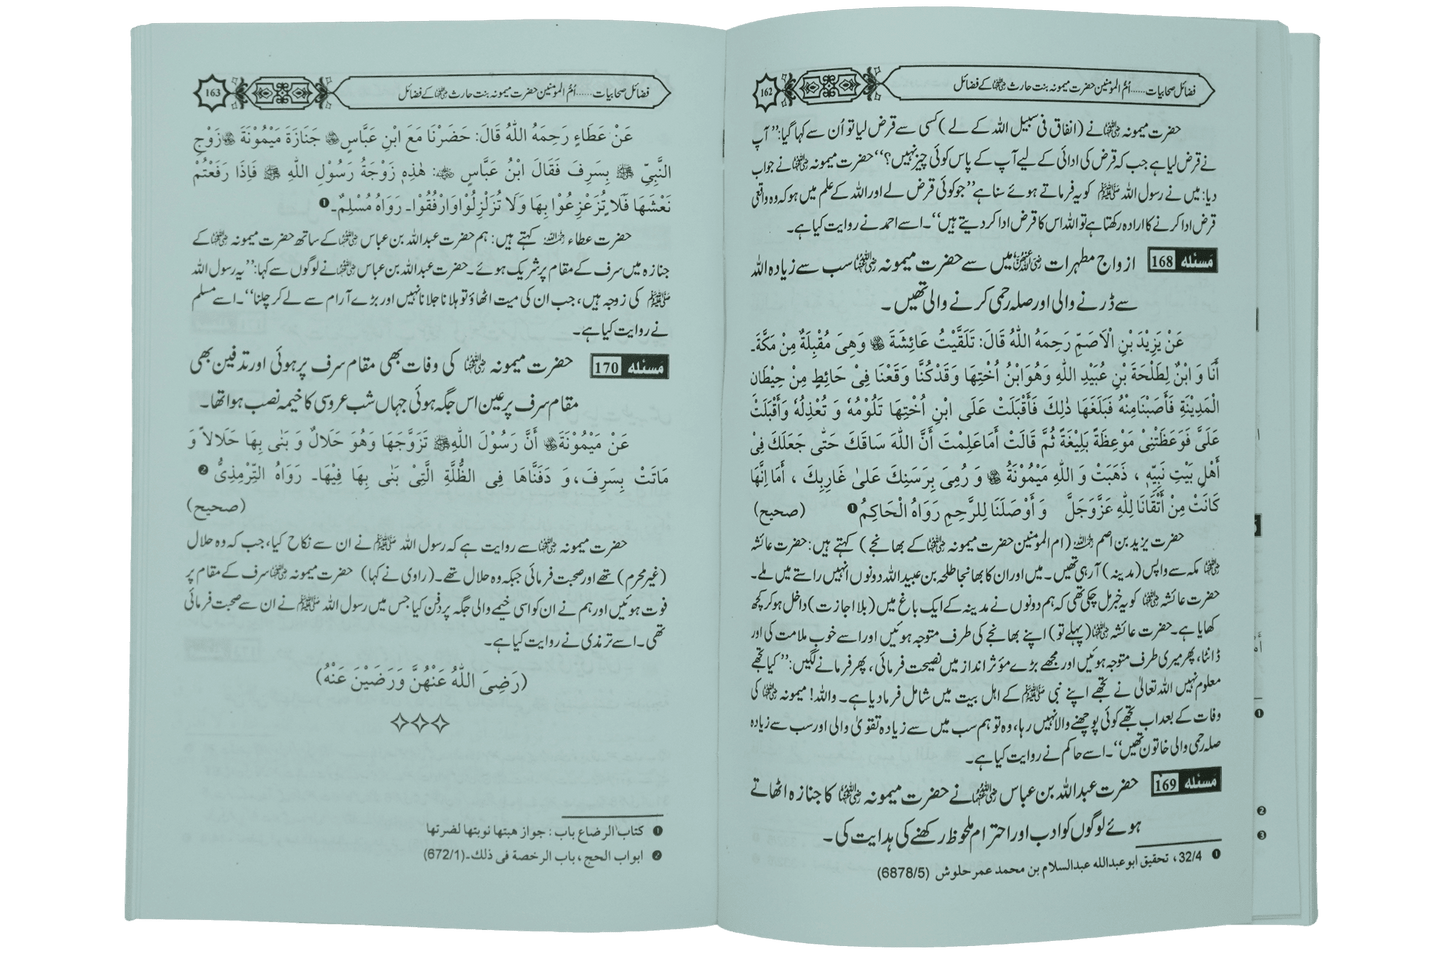 فضائل صحابیات ...... اُمّ المؤمنین حضرت میمونہ بنت حارث ؓ کے فضائل
162
حضرت میمونہ ؓ نے (انفاق فی سبیل اللہ کے لے) کسی سے قرض لیا تو اُن سے کہا گیا: ’’آپ
نے قرض لیا ہے جب کہ قرض کی ادائی کے لیے آپ کے پاس کوئی چیز نہیں؟‘‘ حضرت میمونہ ؓ نے جواب
دیا: میں نے رسول اللہ ﷺ کو یہ فرماتے ہوئے سنا ہے ’’جو کوئی قرض لے اور اللہ کے علم میں ہو کہ وہ واقعی
قرض ادا کرنے کا ارادہ رکھتا ہے تو اللہ اس کا قرض ادا کر دیتے ہیں‘‘۔ اسے احمد نے روایت کیا ہے۔
مسئلہ 168 ازواج مطہرات ؓ میں سے حضرت میمونہ ؓ سب سے زیادہ اللہ
سے ڈرنے والی اور صلہ رحمی کرنے والی تھیں۔
عَنْ یَزِیْدَ بْنِ الْاَصَمِّ رَحِمَهُ اللّٰهُ قَالَ: تَلَقَّیْتُ عَائِشَةَ ؓ وَهِیَ مُقْبِلَةٌ مِنْ مَكَّةَ۔
أَنَا وَ ابْنٌ لِطَلْحَةَ بْنِ عُبَیْدِ اللّٰهِ وَهُوَ ابْنُ أُخْتِهَا وَقَدْ كُنَّا وَقَعْنَا فِیْ حَائِطٍ مِنْ حِیْطَانِ
الْمَدِیْنَةِ فَأَصَبْنَا مِنْهُ فَبَلَغَهَا ذٰلِكَ فَأَقْبَلَتْ عَلَی ابْنِ أُخْتِهَا تَلُوْمُهُ وَ تُعْذِلُهُ وَأَقْبَلَتْ
عَلَیَّ فَوَعَظَتْنِیْ مَوْعِظَةً بَلِیْغَةً ثُمَّ قَالَتْ أَمَا عَلِمْتَ أَنَّ اللّٰهَ سَاقَكَ حَتّٰی جَعَلَكَ فِیْ
أَهْلِ بَیْتِ نَبِیِّهِ ، ذَهَبَتْ وَ اللّٰهِ مَیْمُوْنَةُ ؓ وَ رُمِیَ بِرَسَنِكَ عَلیٰ غَارِبِكَ ، أَمَا اِنَّهَا
كَانَتْ مِنْ أَتْقَانَا لِلّٰهِ عَزَّوَجَلَّ وَ أَوْصَلَنَا لِلرَّحِمِ رَوَاهُ الْحَاكِمُ ❶ (صحیح)
حضرت یزید بن اصم ؒ (ام المؤمنین حضرت میمونہ ؓ کے بھانجے) کہتے ہیں: حضرت عائشہ
ؓ مکہ سے واپس (مدینہ) آرہی تھیں۔ میں اور ان کا بھانجا طلحہ بن عبیداللہ دونوں انہیں راستے میں ملے۔
حضرت عائشہ ؓ کو یہ خبر مل چکی تھی کہ ہم دونوں نے مدینہ کے ایک باغ میں (بلا اجازت) داخل ہو کر کچھ
کھایا ہے۔ حضرت عائشہ ؓ (پہلے تو) اپنے بھانجے کی طرف متوجہ ہوئیں اور اسے خوب ملامت کی اور
ڈانٹا، پھر میری طرف متوجہ ہوئیں اور مجھے بڑے مؤثر انداز میں نصیحت فرمائی، پھر فرمانے لگیں: ’’کیا تجھے
معلوم نہیں اللہ تعالیٰ نے تجھے اپنے نبی ﷺ کے اھل بیت میں شامل فرما دیا ہے۔ واللہ! میمونہ ؓ کی
وفات کے بعد اب تجھے کوئی پوچھنے والا نہیں رہا، وہ تو ہم سب میں سے زیادہ تقویٰ والی اور سب سے زیادہ
صلہ رحمی والی خاتون تھیں‘‘۔ اسے حاکم نے روایت کیا ہے۔
مسئلہ 169 حضرت عبداللہ بن عباس ؓ نے حضرت میمونہ ؓ کا جنازہ اٹھاتے
ہوئے لوگوں کو ادب اور احترام ملحوظ رکھنے کی ہدایت کی۔
❶ 32/4، تحقیق ابو عبدالله عبدالسلام بن محمد عمر حلوش (6878/5)
فضائل صحابیات ...... اُمّ المؤمنین حضرت میمونہ بنت حارث ؓ کے فضائل
163
عَنْ عَطَاءٍ رَحِمَهُ اللّٰهُ قَالَ: حَضَرْنَا مَعَ ابْنِ عَبَّاسٍ ؓ جَنَازَةَ مَیْمُوْنَةَ ؓ زَوْجِ
النَّبِیِّ ﷺ بِسَرِفَ فَقَالَ ابْنُ عَبَّاسٍ ؓ: هٰذِهٖ زَوْجَةُ رَسُوْلِ اللّٰهِ ﷺ فَاِذَا رَفَعْتُمْ
نَعْشَهَا فَلَا تُزَعْزِعُوْا بِهَا وَلَا تُزَلْزِلُوْا وَارْفُقُوْا۔ رَوَاهُ مُسْلِمٌ۔❶
حضرت عطاء ؒ کہتے ہیں: ہم حضرت عبداللہ بن عباس ؓ کے ساتھ حضرت میمونہ ؓ کے
جنازہ میں سرف کے مقام پر شریک ہوئے۔ حضرت عبداللہ بن عباس ؓ نے لوگوں سے کہا: ’’یہ رسول اللہ
ﷺ کی زوجہ ہیں، جب ان کی میت اٹھاؤ تو ہلانا جلانا نہیں اور بڑے آرام سے لے کر چلنا‘‘۔ اسے مسلم
نے روایت کیا ہے۔
مسئلہ 170 حضرت میمونہ ؓ کی وفات بھی مقام سرف پر ہوئی اور تدفین بھی
مقام سرف پر عین اس جگہ ہوئی جہاں شب عروسی کا خیمہ نصب ہوا تھا۔
عَنْ مَیْمُوْنَةَ ؓ أَنَّ رَسُوْلَ اللّٰهِ ﷺ تَزَوَّجَهَا وَهُوَ حَلَالٌ وَ بَنٰی بِهَا حَلَالاً وَ
مَاتَتْ بِسَرِفَ، وَ دَفَنَّاهَا فِی الظُّلَّةِ الَّتِیْ بَنٰی بِهَا فِیْهَا۔ رَوَاهُ التِّرْمِذِیُّ ❷
(صحیح)
حضرت میمونہ ؓ سے روایت ہے کہ رسول اللہ ﷺ نے ان سے نکاح کیا، جب کہ وہ حلال
(غیر محرم) تھے اور صحبت فرمائی جبکہ وہ حلال تھے۔ (راوی نے کہا) حضرت میمونہ ؓ سرف کے مقام پر
فوت ہوئیں اور ہم نے ان کو اسی خیمے والی جگہ پر دفن کیا جس میں رسول اللہ ﷺ نے ان سے صحبت فرمائی
تھی۔ اسے ترمذی نے روایت کیا ہے۔
(رَضِیَ اللّٰهُ عَنْهُنَّ وَرَضَیْنَ عَنْهُ)
❶ کتاب الرضاع باب : جواز هبتها نوبتها لضرتها
❷ ابواب الحج ، باب الرخصة فی ذلك۔(672/1)